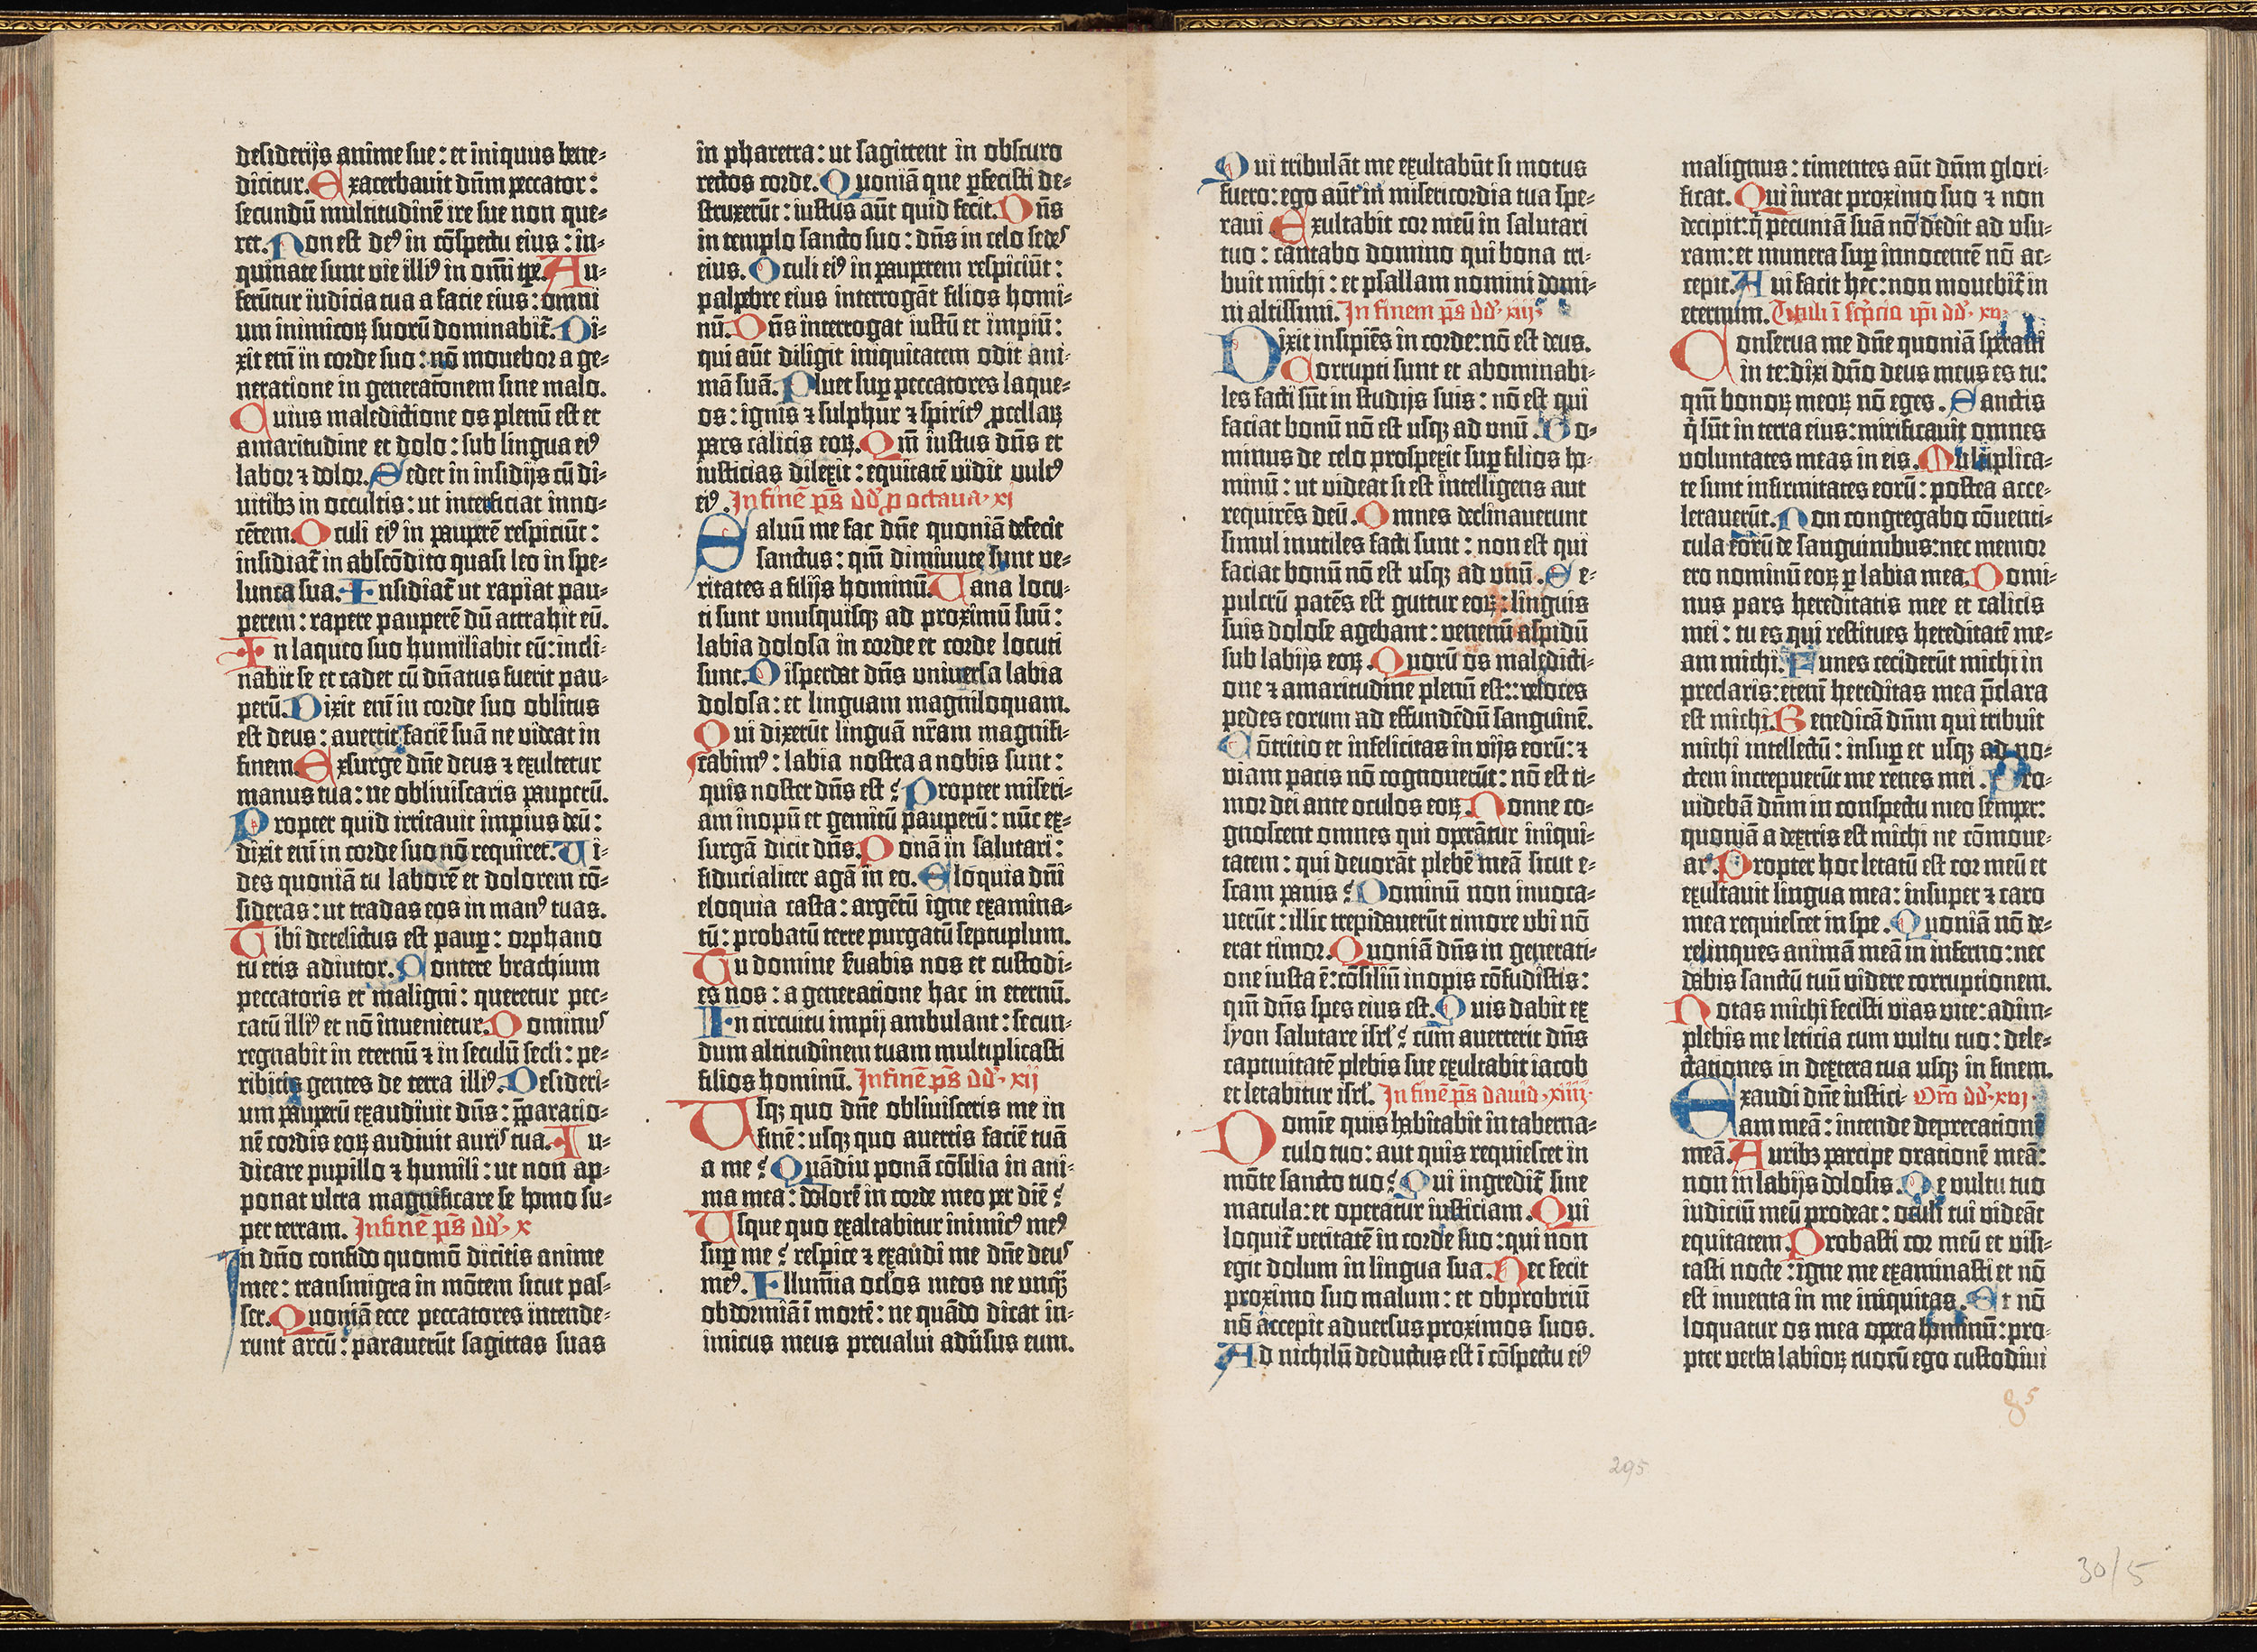 desiderijs anime sue: et iniquus bene-
dicitur. Exacerbauit dñm peccator:
secundũ multitudinẽ ire sue non que-
ret. Non est deꝰ in cõspectu eius: in-
quinate sunt vie illiꝰ in omĩ tp̃e. Au-
feruntur iudicia tua a facie eius: omni
um inimicoꝝ suorũ dominabit̃. Di-
xit em̃ in corde suo: nõ mouebor a ge-
neratione in generatõnem sine malo.
Cuius maledictione os plenũ est et
amaritudine et dolo: sub lingua eiꝰ
labor ⁊ dolor. Sedet in insidijs cũ di-
uitibꝫ in occultis: ut interficiat inno-
cẽtem. Oculi eiꝰ in pauperẽ respiciũt:
insidiat̃ in abscõdito quasi leo in spe-
lunca sua. Insidiat̃ ut rapiat pau-
perem: rapere pauperẽ dũ attrahit eũ.
In laqueo suo humiliabit eũ: incli-
nabit se et cadet cũ dñatus fuerit pau-
perũ. Dixit em̃ in corde suo oblitus
est deus: auertit faciẽ suã ne videat in
finem. Exsurge dñe deus ⁊ exultetur
manus tua: ne obliuiscaris pauperũ.
Propter quid irritauit impius deũ:
dixit em̃ in corde suo nõ requiret. Ui-
des quoniã tu laborẽ et dolorem cõ-
sideras: ut tradas eos in manꝰ tuas.
Tibi derelictus est paup̲: orphano
tu eris adiutor. Contere brachium
peccatoris et maligni: queretur pec-
catũ illiꝰ et nõ inuenietur. Dominus
regnabit in eternũ ⁊ in seculũ secli: pe-
ribitis gentes de terra illiꝰ. Desideri-
um pauperũ exaudiuit dñs: p̃paratio-
nẽ cordis eoꝝ audiuit auris tua. Iu-
dicare pupillo ⁊ humili: ut non ap-
ponat vltra magnificare se homo su-
per terram. In finẽ p̃s dd̃. x
In dño confido quomõ dicitis anime
mee: transmigra in mõtem sicut pas-
ser. Quoniã ecce peccatores intende-
runt arcũ: parauerũt sagittas suas
in pharetra: ut sagittent in obscuro
rectos corde. Quoniã que ꝑfecisti de-
struxerũt: iustus aũt quid fecit. Dñs
in templo sancto suo: dñs in celo sedes
eius. Oculi eiꝰ in pauperem respiciũt:
palpebre eius interrogãt filios homi-
nũ. Dñs interrogat iustũ et impiũ:
qui aũt diligit iniquitatem odit ani-
mã suã. Pluet suꝑ peccatores laque-
os: ignis ⁊ sulphur ⁊ spiritꝰ ꝓcellaꝝ
pars calicis eoꝝ. Qm̃ iustus dñs et
iusticias dilexit: equitatẽ vidit vultꝰ
eiꝰ. In finẽ p̃s dd̃ p octaua. xj
Saluũ me fac dñe quoniã defecit
sanctus: qm̃ diminute sunt ve-
ritates a filijs hominũ. Uana locu-
ti sunt vnusquisqꝫ ad proximũ suũ:
labia dolosa in corde et corde locuti
sunt. Disperdat dñs vniuersa labia
dolosa: et linguam magniloquam.
Qui dixerũt linguã nr̃am magnifi-
cabimꝰ: labia nostra a nobis sunt:
quis noster dñs est? Propter miseri-
am inopũ et gemitũ pauperũ: nũc ex-
surgã dicit dñs. Ponã in salutari:
fiducialiter agã in eo. Eloquia dñi
eloquia casta: argẽtũ igne examina-
tũ: probatũ terre purgatũ septuplum.
Tu domine seruabis nos et custodi-
es nos: a generatione hac in eternũ.
In circuitu impij ambulant: secun-
dum altitudinem tuam multiplicasti
filios hominũ. In finẽ p̃s dd̃. xij
Usqꝫ quo dñe obliuisceris me in
finẽ: usqꝫ quo auertis faciẽ tuã
a me? Quãdiu ponã cõsilia in ani-
ma mea: dolorẽ in corde meo per diẽ?
Usque quo exaltabitur inimicꝰ meꝰ
suꝑ me? respice ⁊ exaudi me dñe deus
meꝰ. Illumĩa oc̃los meos ne vnqꝫ
obdormiã ĩ mortẽ: ne quãdo dicat in-
imicus meus preualui adũsus eum.
Qui tribulãt me exultabũt si motus
fuero: ego aũt in misericordia tua spe-
raui. Exultabit cor meũ in salutari
tuo: cantabo domino qui bona tri-
buit michi: et psallam nomini domi-
ni altissimi. In finem p̃s dd̃. xiij
Dixit insipiẽs in corde: nõ est deus.
Corrupti sunt et abominabi-
les facti sũt in studijs suis: nõ est qui
faciat bonũ nõ est usqꝫ ad vnũ. Do-
minus de celo prospexit suꝑ filios ho-
minũ: ut videat si est intelligens aut
requirẽs deũ. Omnes declinauerunt
simul inutiles facti sunt: non est qui
faciat bonũ nõ est usqꝫ ad vnũ. Se-
pulcrũ patẽs est guttur eoꝝ: linguis
suis dolose agebant: venenũ aspidũ
sub labijs eoꝝ. Quorũ os maledicti-
one ⁊ amaritudine plenũ est:: veloces
pedes eorum ad effundẽdũ sanguinẽ.
Cõtritio et infelicitas in vijs eorũ: ⁊
viam pacis nõ cognouerũt: nõ est ti-
mor dei ante oculos eoꝝ. Nonne co-
gnoscent omnes qui operãtur iniqui-
tatem: qui deuorãt plebẽ meã sicut e-
scam panis? Dominũ non inuoca-
uerũt: illic trepidauerũt timore vbi nõ
erat timor. Quoniã dñs in generati-
one iusta ẽ: cõsiliũ inopis cõfudistis:
qm̃ dñs spes eius est. Quis dabit ex
syon salutare isrl̃? cum auerterit dñs
captiuitatẽ plebis sue exultabit iacob
et letabitur isrl̃. In finẽ p̃s dauid. xiiij.
Domie quis habitabit in taberna-
culo tuo: aut quis requiescet in
mõte sancto tuo? Qui ingredit̃ sine
macula: et operatur iusticiam. Qui
loquit̃ veritatẽ in corde suo: qui non
egit dolum in lingua sua. Nec fecit
proximo suo malum: et obprobriũ
nõ accepit aduersus proximos suos.
Ad nichilũ deductus est ĩ cõspectu eiꝰ
malignus: timentes aũt dñm glori-
ficat. Qui iurat proximo suo ⁊ non
decipit: q̃ pecuniã suã nõ dedit ad vsu-
ram: et munera suꝑ innocentẽ nõ ac-
cepit. Qui facit hec: non mouebit̃ in
eternum. dd̃. xv
Conserua me dñe quoniã speraui
in te: dixi dño deus meus es tu:
qm̃ bonoꝝ meoꝝ nõ eges. Sanctis
q̃ sũt in terra eius: mirificauit omnes
voluntates meas in eis. Multiplica-
te sunt infirmitates eorũ: postea acce-
lerauerũt. Non congregabo cõuenti-
cula eorũ de sanguinibus: nec memor
ero nominũ eoꝝ ꝑ labia mea. Domi-
nus pars hereditatis mee et calicis
mei: tu es qui restitues hereditatẽ me-
am michi. Funes ceciderũt michi in
preclaris: etenĩ hereditas mea p̃clara
est michi. Benedicã dñm qui tribuit
michi intellectũ: insuꝑ et usqꝫ ad no-
ctem increpuerũt me renes mei. Pro-
uidebã dñm in conspectu meo semper:
quoniã a dextris est michi ne cõmoue-
ar. Propter hoc letatũ est cor meũ et
exultauit lingua mea: insuper ⁊ caro
mea requiescet in spe. Quoniã nõ de-
relinques animã meã in inferno: nec
dabis sanctũ tuũ videre corruptionem.
Notas michi fecisti vias vite: adim-
plebis me leticia cum vultu tuo: dele-
ctationes in dextera tua usqꝫ in finem.
Exaudi dñe iustici- Or̃o dd̃. xvj.
am meã: intende deprecationẽ
meã. Auribꝫ percipe orationẽ meã:
non in labijs dolosis. De vultu tuo
iudiciũ meũ prodeat: oculi tui videãt
equitatem. Probasti cor meũ et visi-
tasti nocte: igne me examinasti et nõ
est inuenta in me iniquitas. Ut nõ
loquatur os mea opera hominũ: pro-
pter verba labioꝝ tuorũ ego custodiui
295
30/5